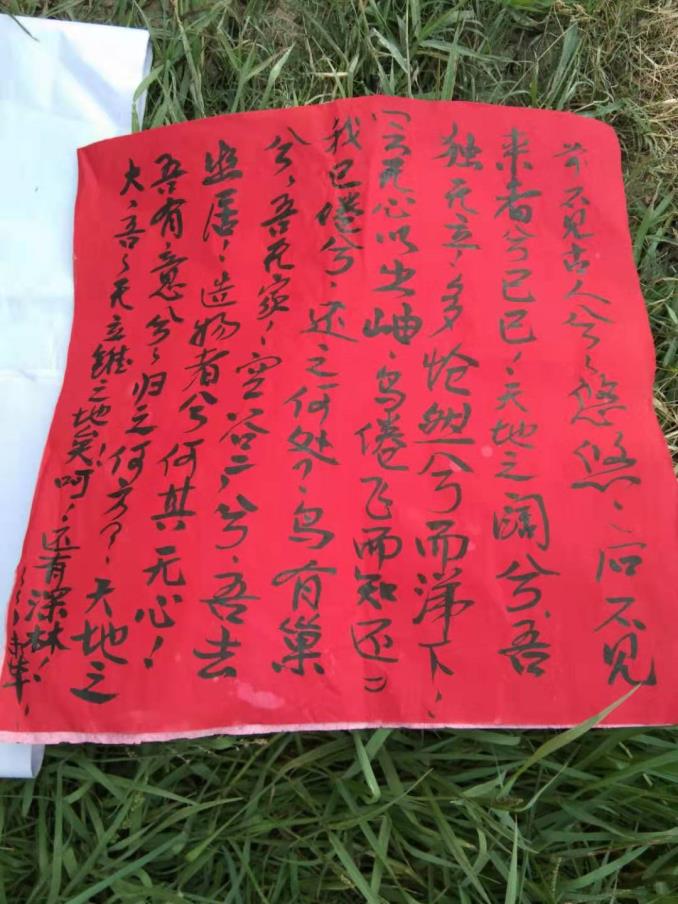 前不见古人兮、悠悠、后不见
来者兮已已！天地之阔兮、吾
独无立、多怆然兮而涕下、
「云无心以出岫、鸟倦飞而知还」
我已倦兮、还之何处？鸟有巢
兮、吾无家、空谷兮、吾去
幽居、造物者兮何其无心！
吾有意兮、归之何方？、天地之
大、吾、无立锥之地矣！呵、还有深林！